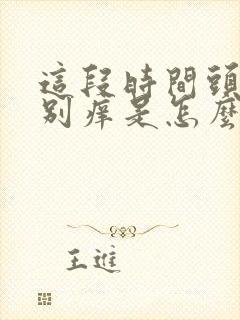 這段時間頭
別痒是怎麼
王進